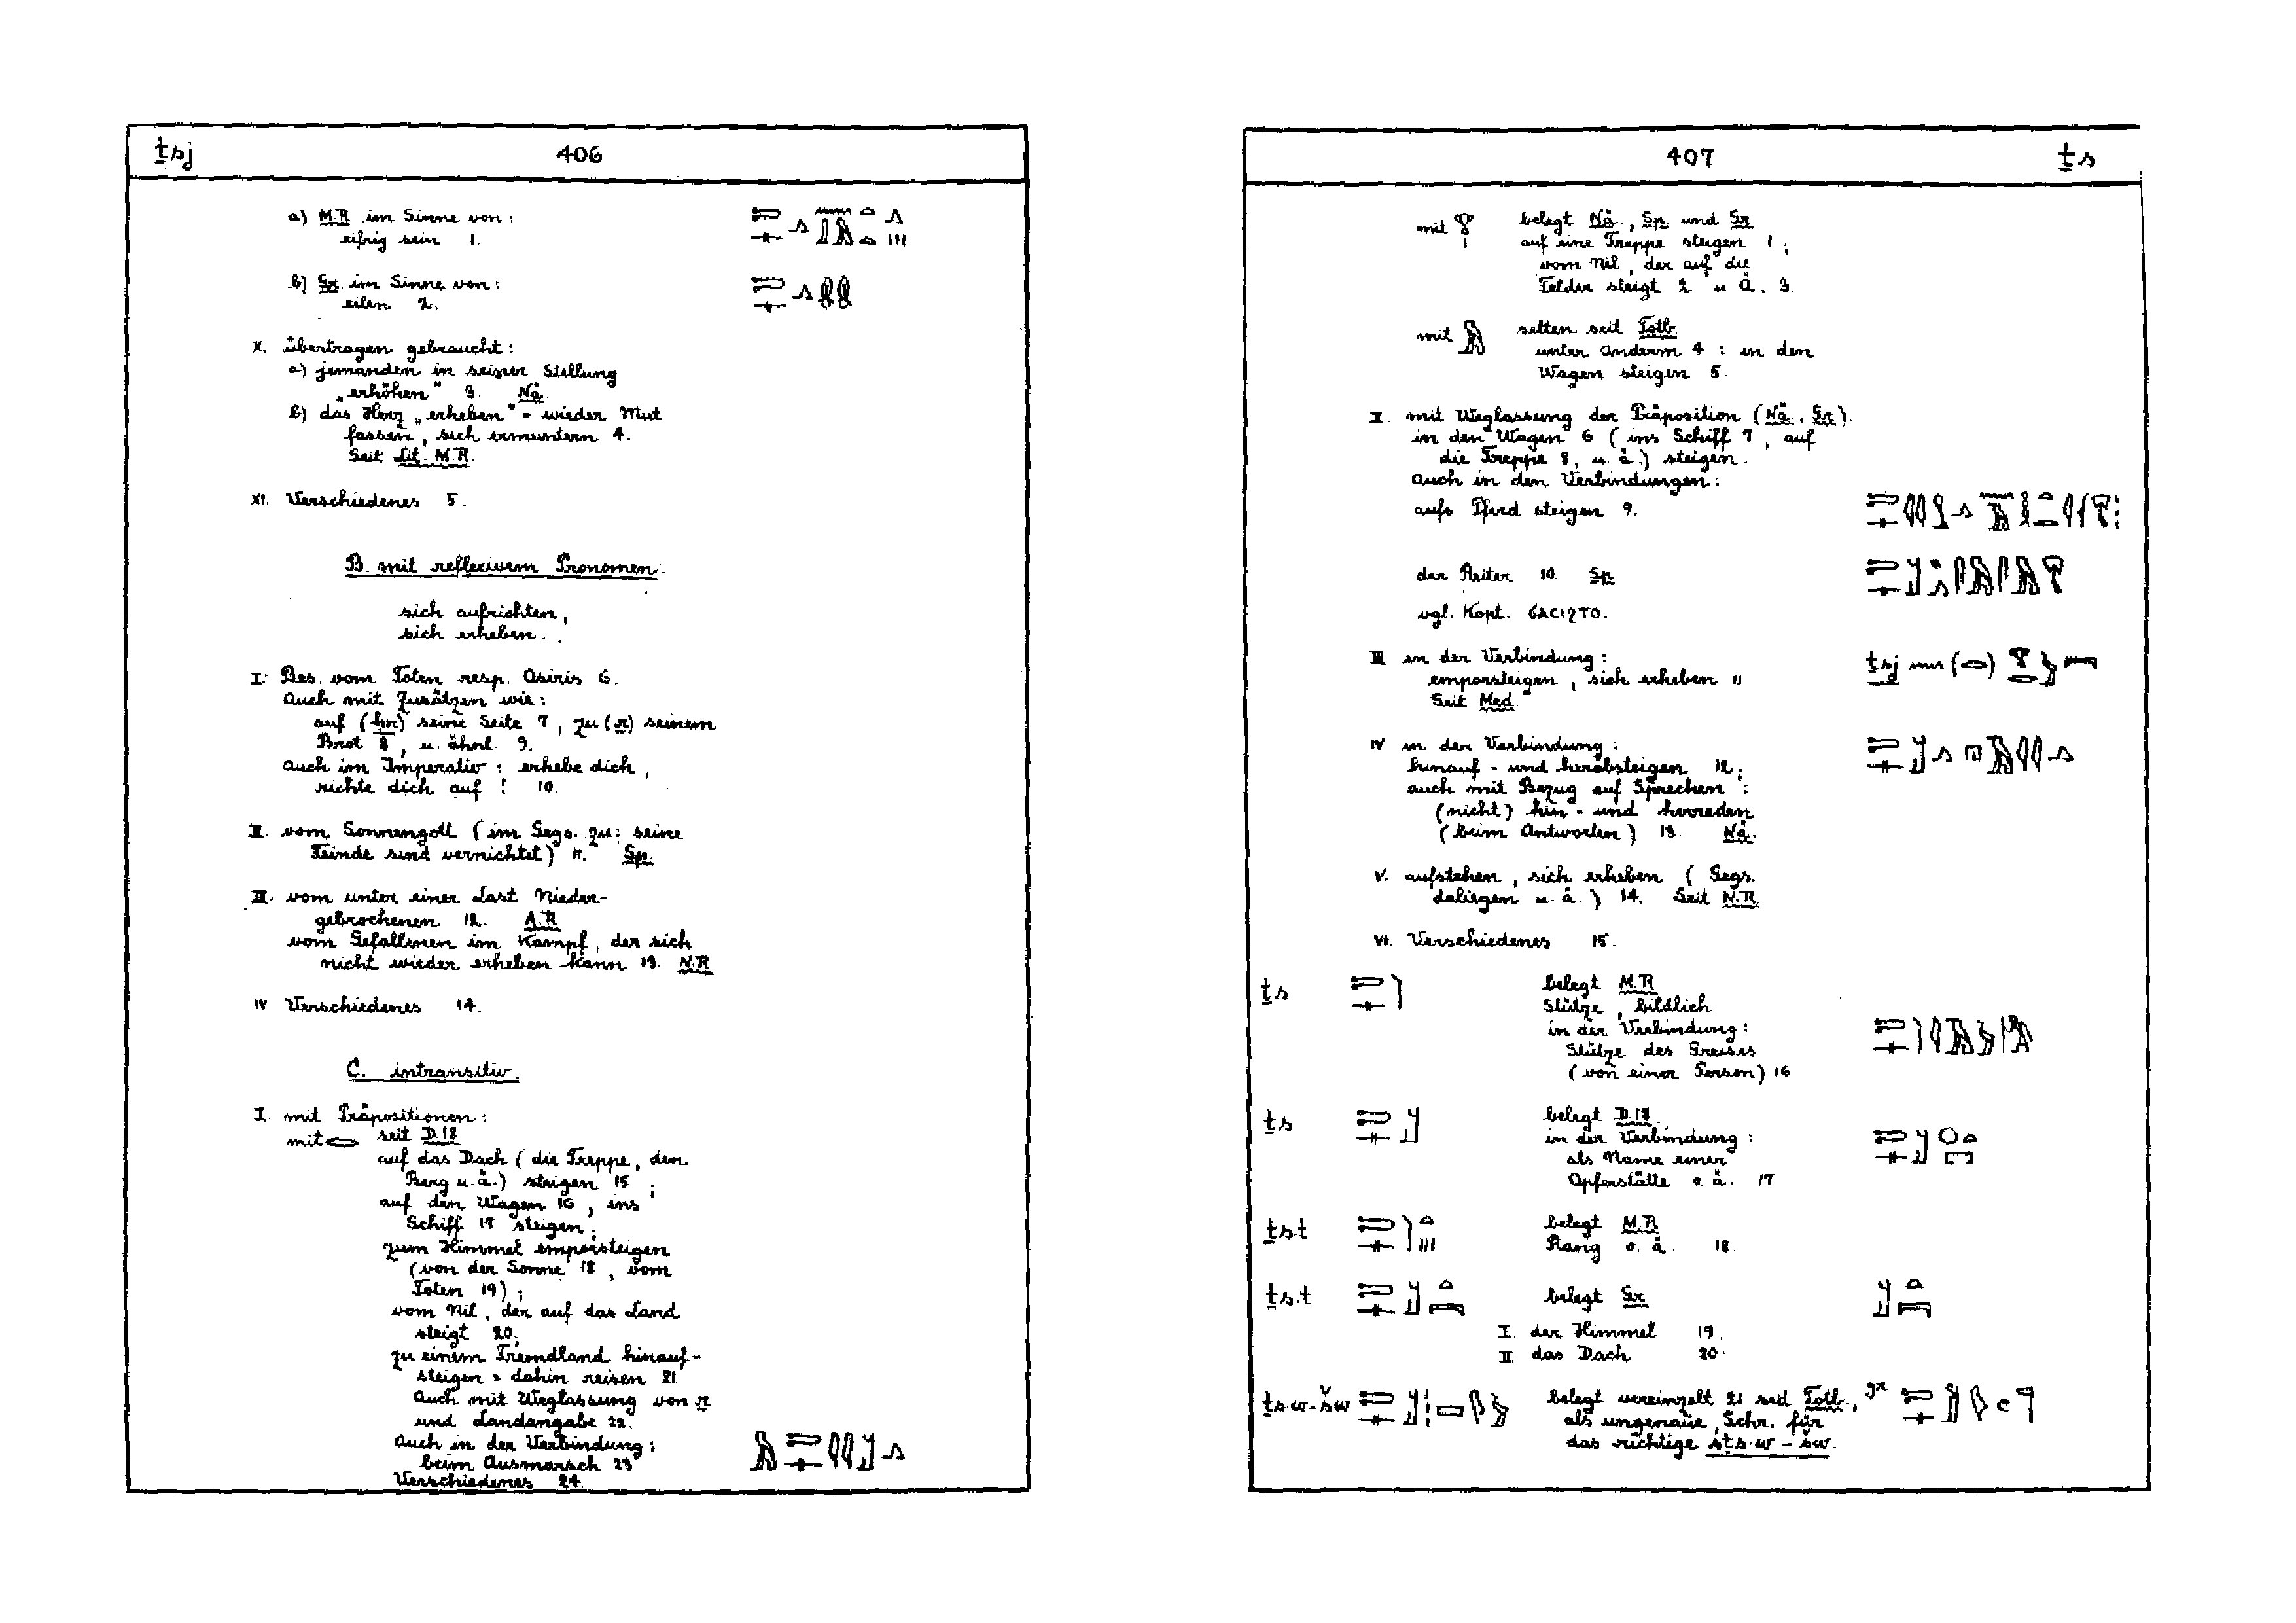 ṯsj 406
a) M.R. im Sinne von:
eifrig sein 1.
b) Gr. im Sinne von:
eilen 2.
X. übertragen gebraucht:
a) jemanden in seiner Stellung
„erhöhen" 3. Nä.
b) das Herz „erheben" = wieder Mut
fassen, sich ermuntern 4.
Seit Lit. M.R.
XI. Verschiedenes 5.
B. mit reflexivem Pronomen.
sich aufrichten,
sich erheben.
I. Bes. vom Toten resp. Osiris 6.
Auch mit Zusätzen wie:
auf (ḥr) seine Seite 7, zu (r) seinem
Brot 8, u. ähnl. 9.
Auch im Imperativ: erhebe dich,
richte dich auf! 10.
II. vom Sonnengott (im Gegs. zu: seine
Feinde sind vernichtet) 11. Sp.
III. vom unter einer Last Nieder-
gebrochenen 12. A.R.
vom Gefallenen im Kampf, der sich
nicht wieder erheben kann 13. N.R.
IV Verschiedenes 14.
C. intransitiv.
I. mit Präpositionen:
mit 𓂋 seit D.18
auf das Dach (die Treppe, den
Berg u.ä.) steigen 15;
auf den Wagen 16, ins
Schiff 17 steigen;
zum Himmel emporsteigen
(von der Sonne 18, vom
Toten 19);
vom Nil, der auf das Land
steigt 20;
zu einem Fremdland hinauf-
steigen = dahin reisen 21.
Auch mit Weglassung von r
und Landangabe 22.
Auch in der Verbindung:
beim Ausmarsch 23
Verschiedenes 24.
407 ṯs
mit 𓁷 belegt Nä., Sp. und Gr.
auf eine Treppe steigen 1;
vom Nil, der auf die
Felder steigt 2 u. Ä. 3.
mit 𓅓 selten seit Totb.
unter Anderm 4: in den
Wagen steigen 5.
II. mit Weglassung der Präposition (Nä., Gr.)
in den Wagen 6 (ins Schiff 7, auf
die Treppe 8, u. ä.) steigen.
Auch in den Verbindungen:
aufs Pferd steigen 9.
der Reiter 10. Sp.
vgl. Kopt.
III in der Verbindung: ṯsj
emporsteigen, sich erheben 11
Seit Med.
IV in der Verbindung:
hinauf- und herabsteigen 12;
auch mit Bezug auf Sprechen:
(nicht) hin- und herreden
(beim Antworten) 13. Nä.
V. aufstehen, sich erheben (Gegs.
daliegen u. ä.) 14. Seit N.R.
VI. Verschiedenes 15.
ṯs belegt M.R.
Stütze, bildlich
in der Verbindung:
Stütze des Greises
(von einer Person) 16
ṯs belegt D.18.
in der Verbindung:
als Name einer
Opferstätte o. ä. 17
ṯs.t belegt M.R.
Rang o. ä. 18.
ṯs.t belegt Gr.
I. der Himmel 19.
II. das Dach 20.
ṯs.w-šw belegt vereinzelt 21 seit Totb., gr
als ungenaue Schr. für
das richtige sṯs.w-šw.